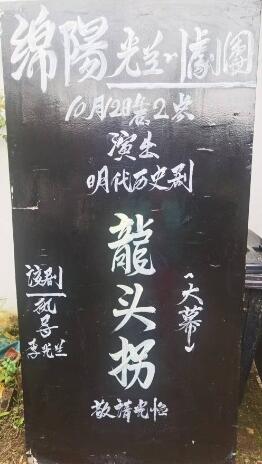 绵陽光兰川劇團
10月28晚2点
演出
明代历史剧
龍头拐
《大幕》
该剧
执导
李光兰
敬請光临